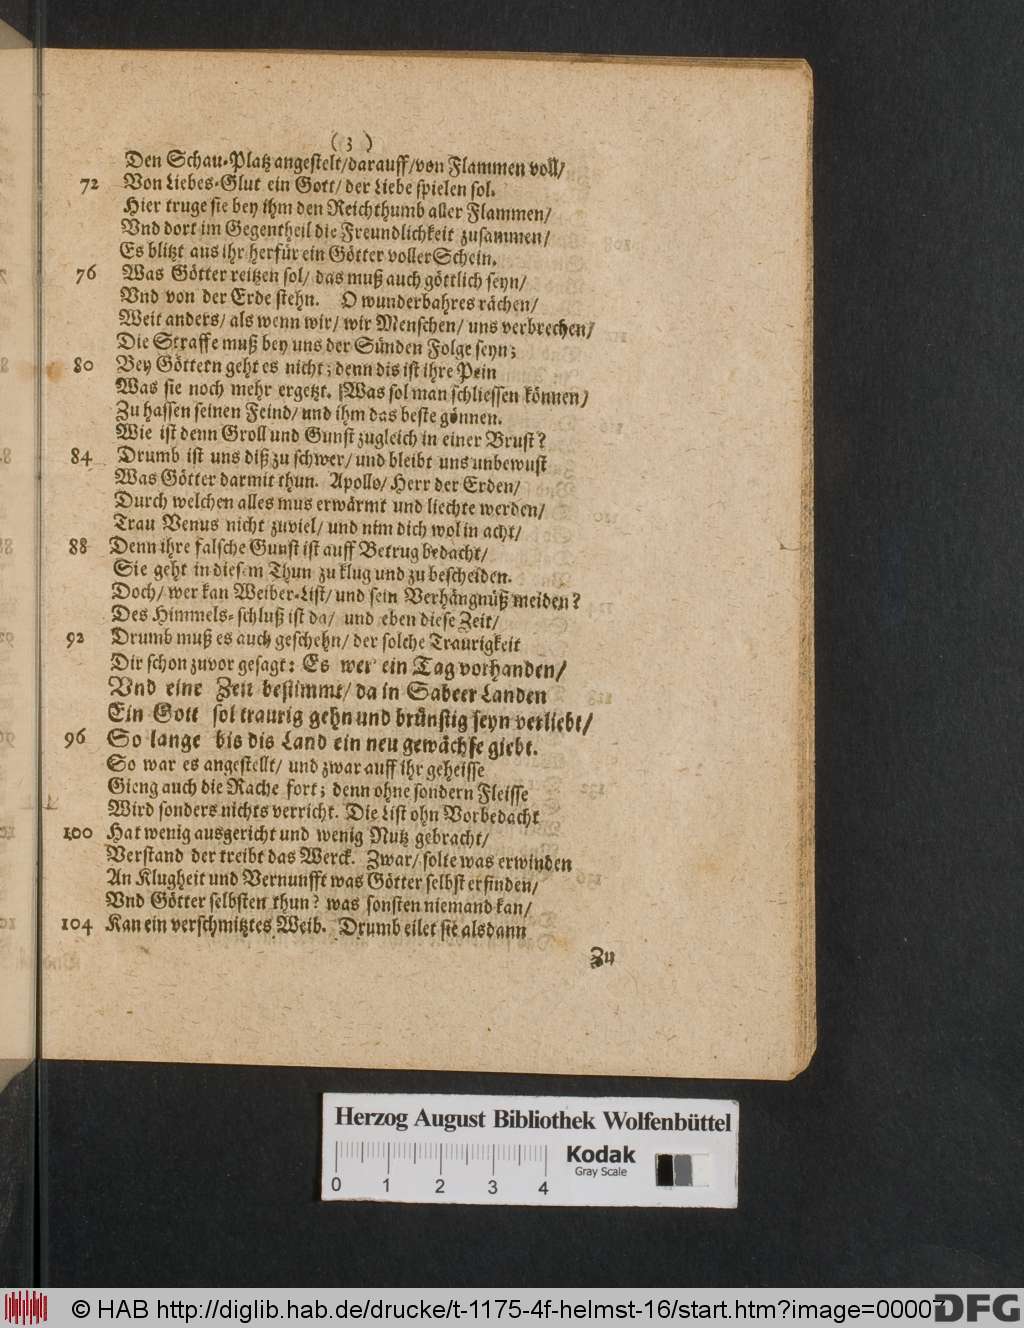 ( 3 )
Den Schau-Platz angestelt/darauff/von Flammen voll/
72 Von Liebes-Glut ein Gott/ der Liebe spielen sol.
Hier truge sie bey ihm den Reichthumb aller Flammen/
Vnd dort im Gegentheil die Freundlichkeit zusammen/
Es blitzt aus ihr herfür ein Götter voller Schein.
76 Was Götter reitzen sol/ das muß auch göttlich seyn/
Vnd von der Erde stehn. O wunderbahres rächen/
Weit anders/ als wenn wir/ wir Menschen/ uns verbrechen/
Die Straffe muß bey uns der Sünden Folge seyn;
80 Bey Göttern geht es nicht; denn dis ist ihre Pein
Was sie noch mehr ergetzt. Was sol man schliessen können/
Zu hassen seinen Feind/ und ihm das beste gönnen.
Wie ist denn Groll und Gunst zugleich in einer Brust?
84 Drumb ist uns diß zu schwer/ und bleibt uns unbewust
Was Götter darmit thun. Apollo/ Herr der Erden/
Durch welchen alles mus erwärmt und liechte werden/
Trau Venus nicht zuviel/ und nim dich wol in acht/
88 Denn ihre falsche Gunst ist auff Betrug bedacht/
Sie geht in diesem Thun zu klug und zu bescheiden.
Doch/ wer kan Weiber-List/ und sein Verhängnüß meiden?
Des Himmels-schluß ist da/ und eben diese Zeit/
92 Drumb muß es auch geschehn/ der solche Traurigkeit
Dir schon zuvor gesagt: Es wer ein Tag vorhanden/
Vnd eine Zeit bestimmt/ da in Sabeer Landen
Ein Gott sol traurig gehn und brünstig seyn verliebt/
96 So lange bis dis Land ein neu gewächse giebt.
So war es angestellt/ und zwar auff ihr geheisse
Gieng auch die Rache fort; denn ohne sondern Fleisse
Wird sonders nichts verricht. Die List ohn Vorbedacht
100 Hat wenig ausgericht und wenig Nutz gebracht/
Verstand der treibt das Werck. Zwar/ solte was erwinden
An Klugheit und Vernunfft was Götter selbst erfinden/
Vnd Götter selbsten thun? was sonsten niemand kan/
104 Kan ein verschmitztes Weib. Drumb eilet sie alsdann
Zu
Herzog August Bibliothek Wolfenbüttel
Kodak
Gray Scale
0 1 2 3 4
© HAB http://diglib.hab.de/drucke/t-1175-4f-helmst-16/start.htm?image=00007
DFG